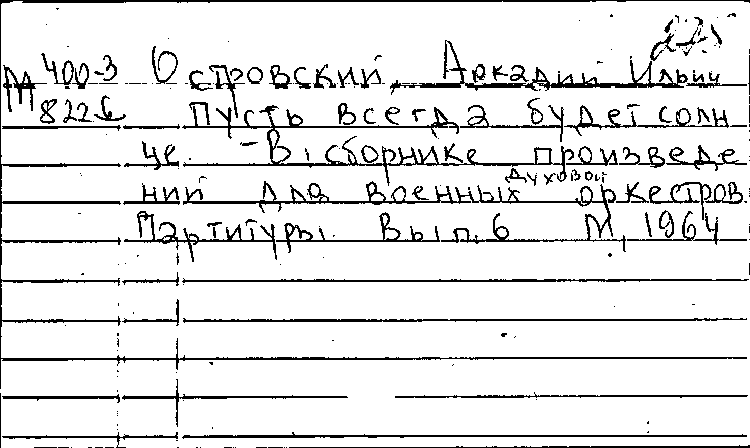 275
М 400-3 Островский, Аркадий Ильич
8226 Пусть всегда будет солн
це. – В: сборнике произведе
ний для военных духовой оркестров
Партитуры. Вып. 6 М, 1964